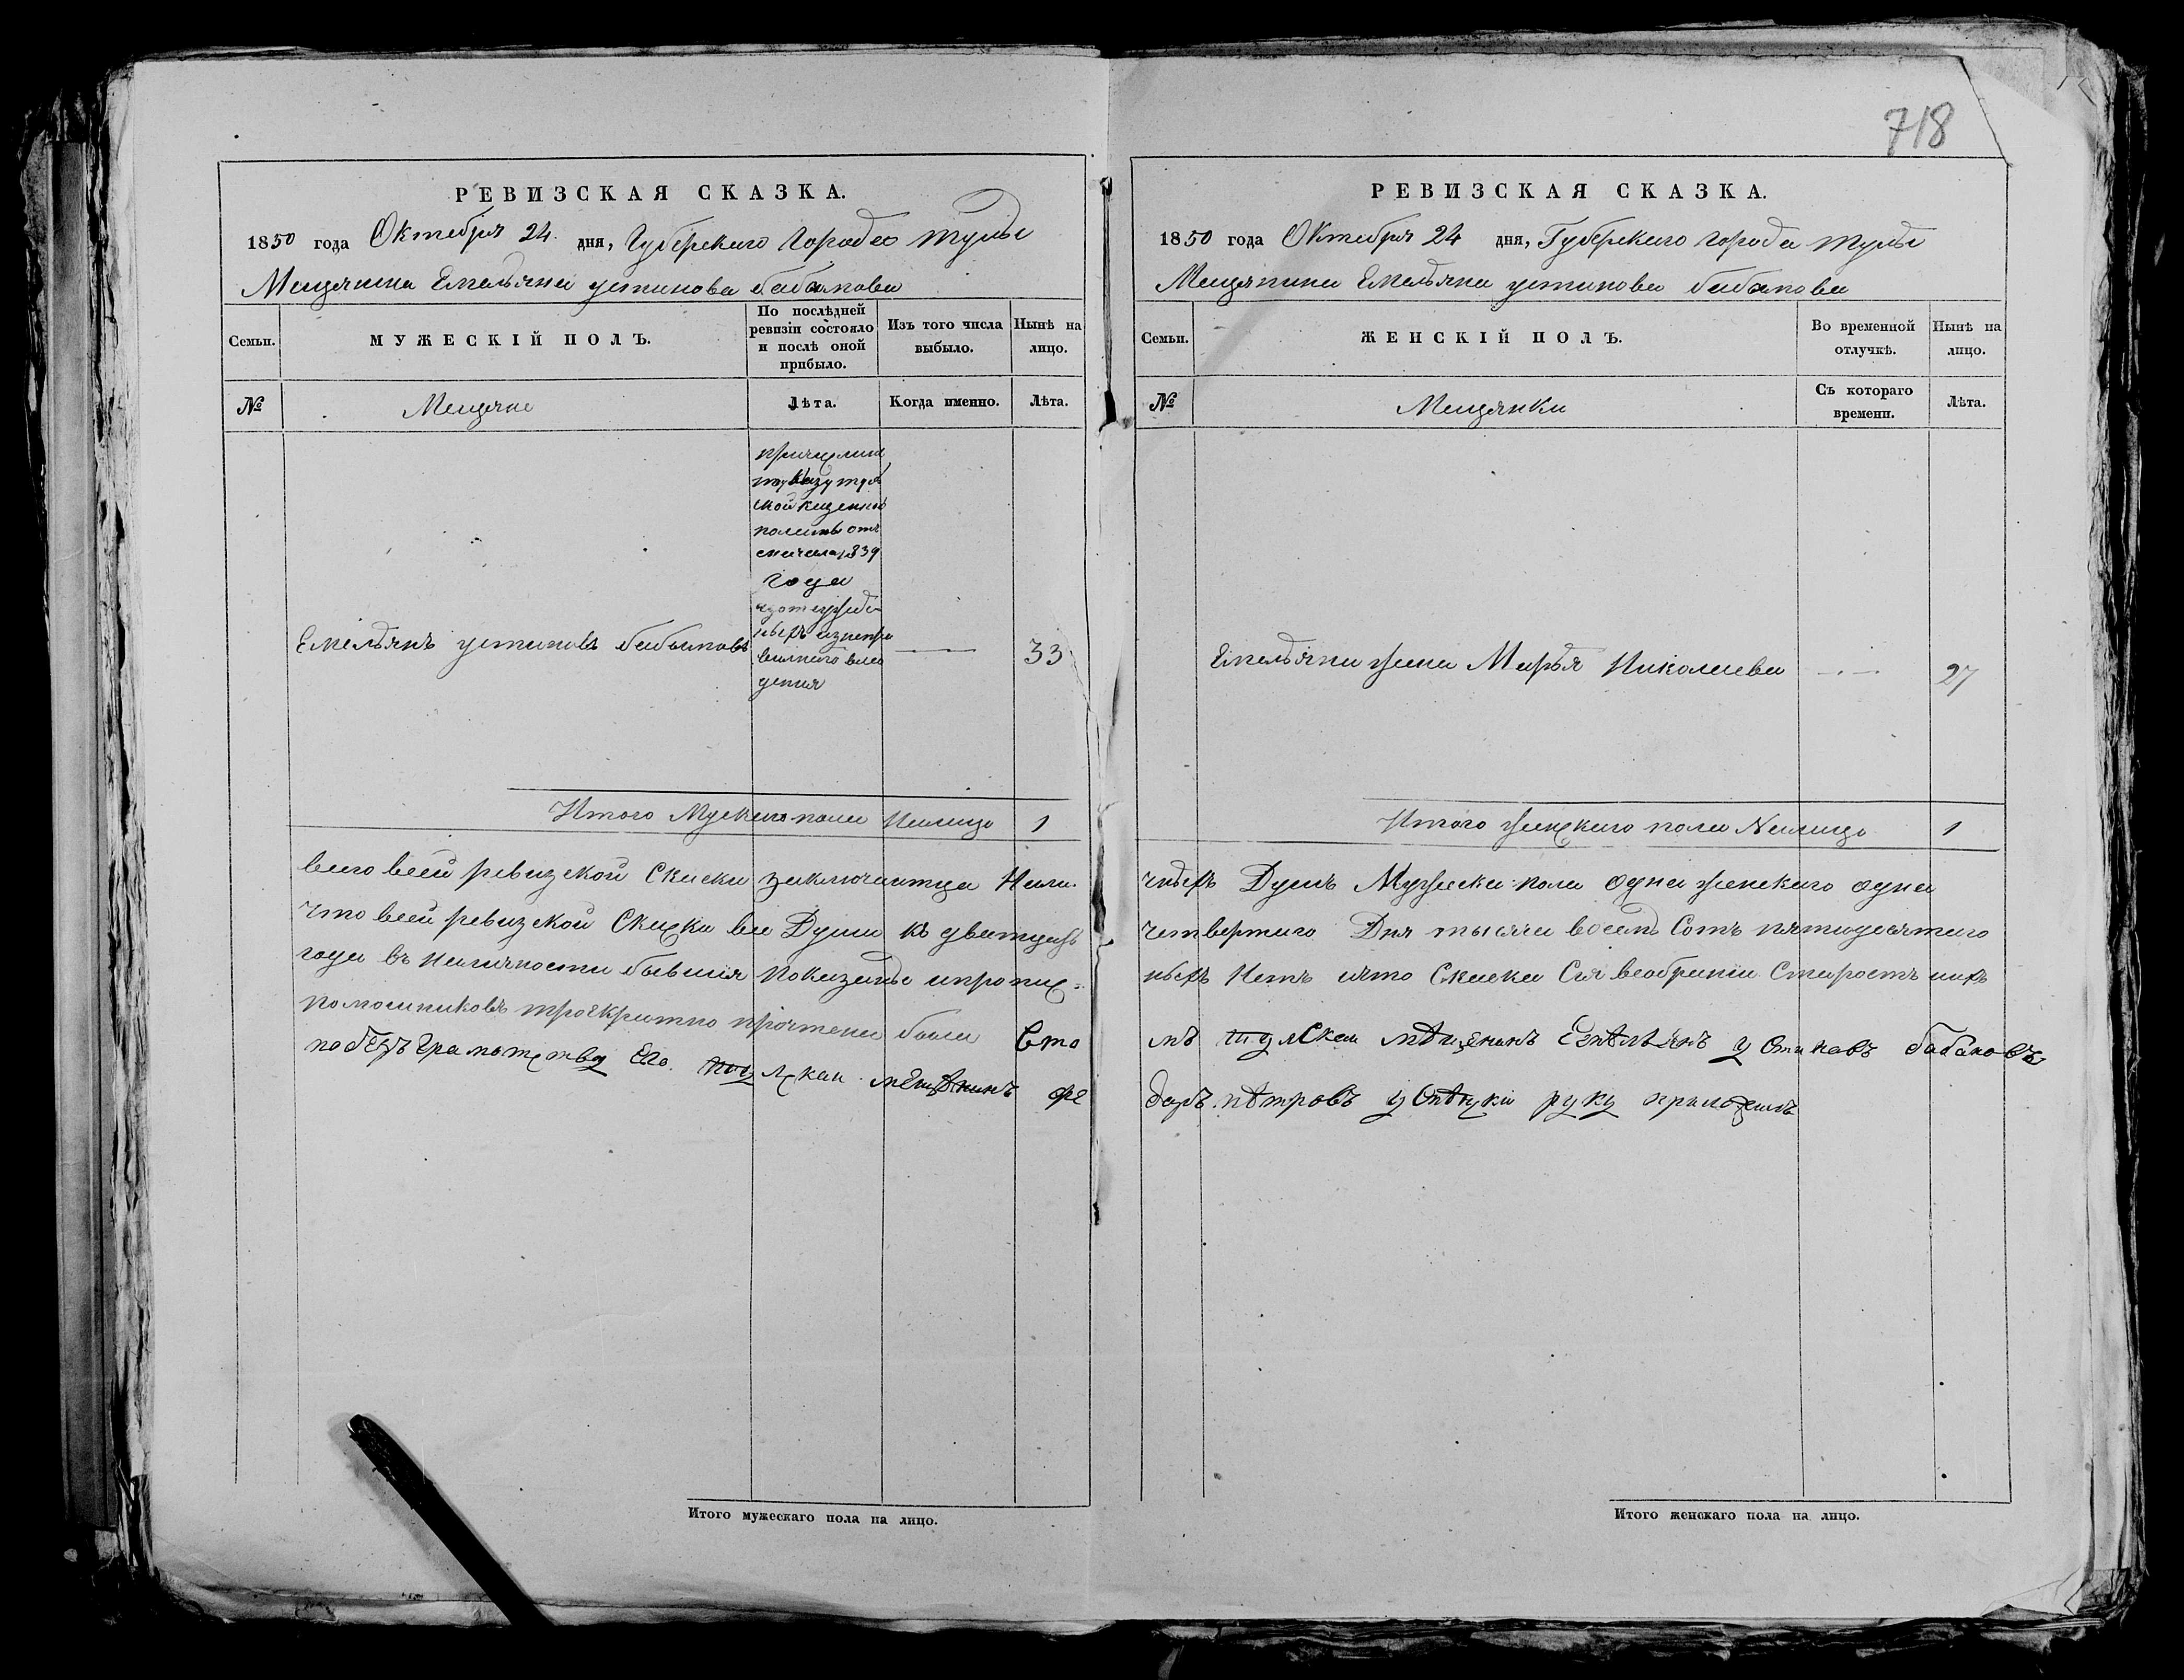 718
РЕВИЗСКАЯ СКАЗКА.
1850 года Октября 24. дня, Губерскаго Города тулы
Мещанина Емельяна устинова бабакова
Семьи.
МУЖЕСКІЙ ПОЛЪ.
По послѣдней ревизіи состояло и послѣ оной прибыло.
Изъ того числа выбыло.
Нынѣ на лицо.
№
Мещяне
Лѣта.
Когда именно.
Лѣта.
ской казенной
полаты отъ
сначала 1839
года
дения
Емельянъ устиновъ бабаковъ
33
Итого Мускаго пола Налицо 1
всего всей ревизской Скаски заключаитца Нали
что всей ревизской Скаски все Души къ дватцать
года въ наличности бывшия показаны и пропис=
помошниковъ троекратно прочтена была Ето
по безъ Грамотству Его. тулскаи мещенинъ фе
Итого мужескаго пола на лицо.
РЕВИЗСКАЯ СКАЗКА.
1850 года Октября 24 дня, Губерскаго города тулы
Мещянина Емельяна устинова бабакова
Семьи.
ЖЕНСКІЙ ПОЛЪ.
Во временной отлучкѣ.
Нынѣ на лицо.
№
Мещянки
Съ котораго времени.
Лѣта.
Емельяна жена Марья Николаева
27
Итого женскаго пола Налицо 1
чныхъ Душъ Мужеска пола одна женскаго одна
четвертаго Дня тысяча восемь Сотъ пятидесятаго
ныхъ Нетъ ичто Скаска Сия
мъ тулскаи мѣщенинъ Емѣльянъ устиновъ бабаковъ
доръ пѣтровъ руку приложилъ
Итого женскаго пола на лицо.